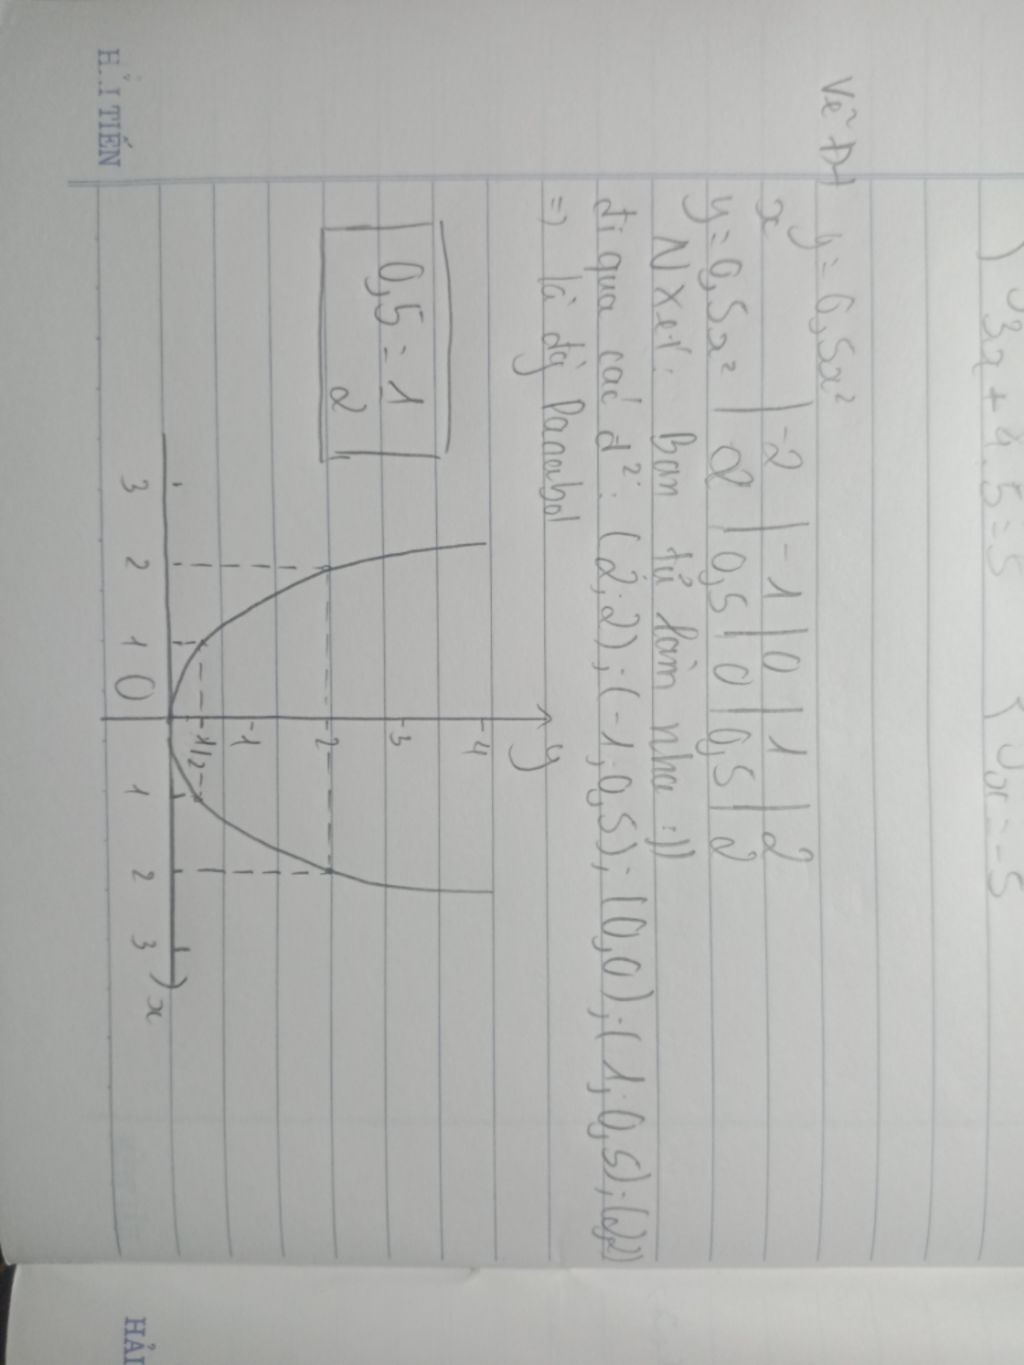 3x + 4.5 = 5
x = -5
Vẽ Đt y = 0,5x²
x | -2 | -1 | 0 | 1 | 2
y = 0,5x² | 2 | 0,5 | 0 | 0,5 | 2
N xét: Bạn tử làm nha :))
đi qua các đ²: (2;2); (-1,0,5); (0,0); (1,0,5); (2,2)
=> là đg Parabol
0,5 = 1
2
y
-4
-3
-2
-1
1/2
3 2 1 0 1 2 3 x
HẢI TIẾN
HẢI